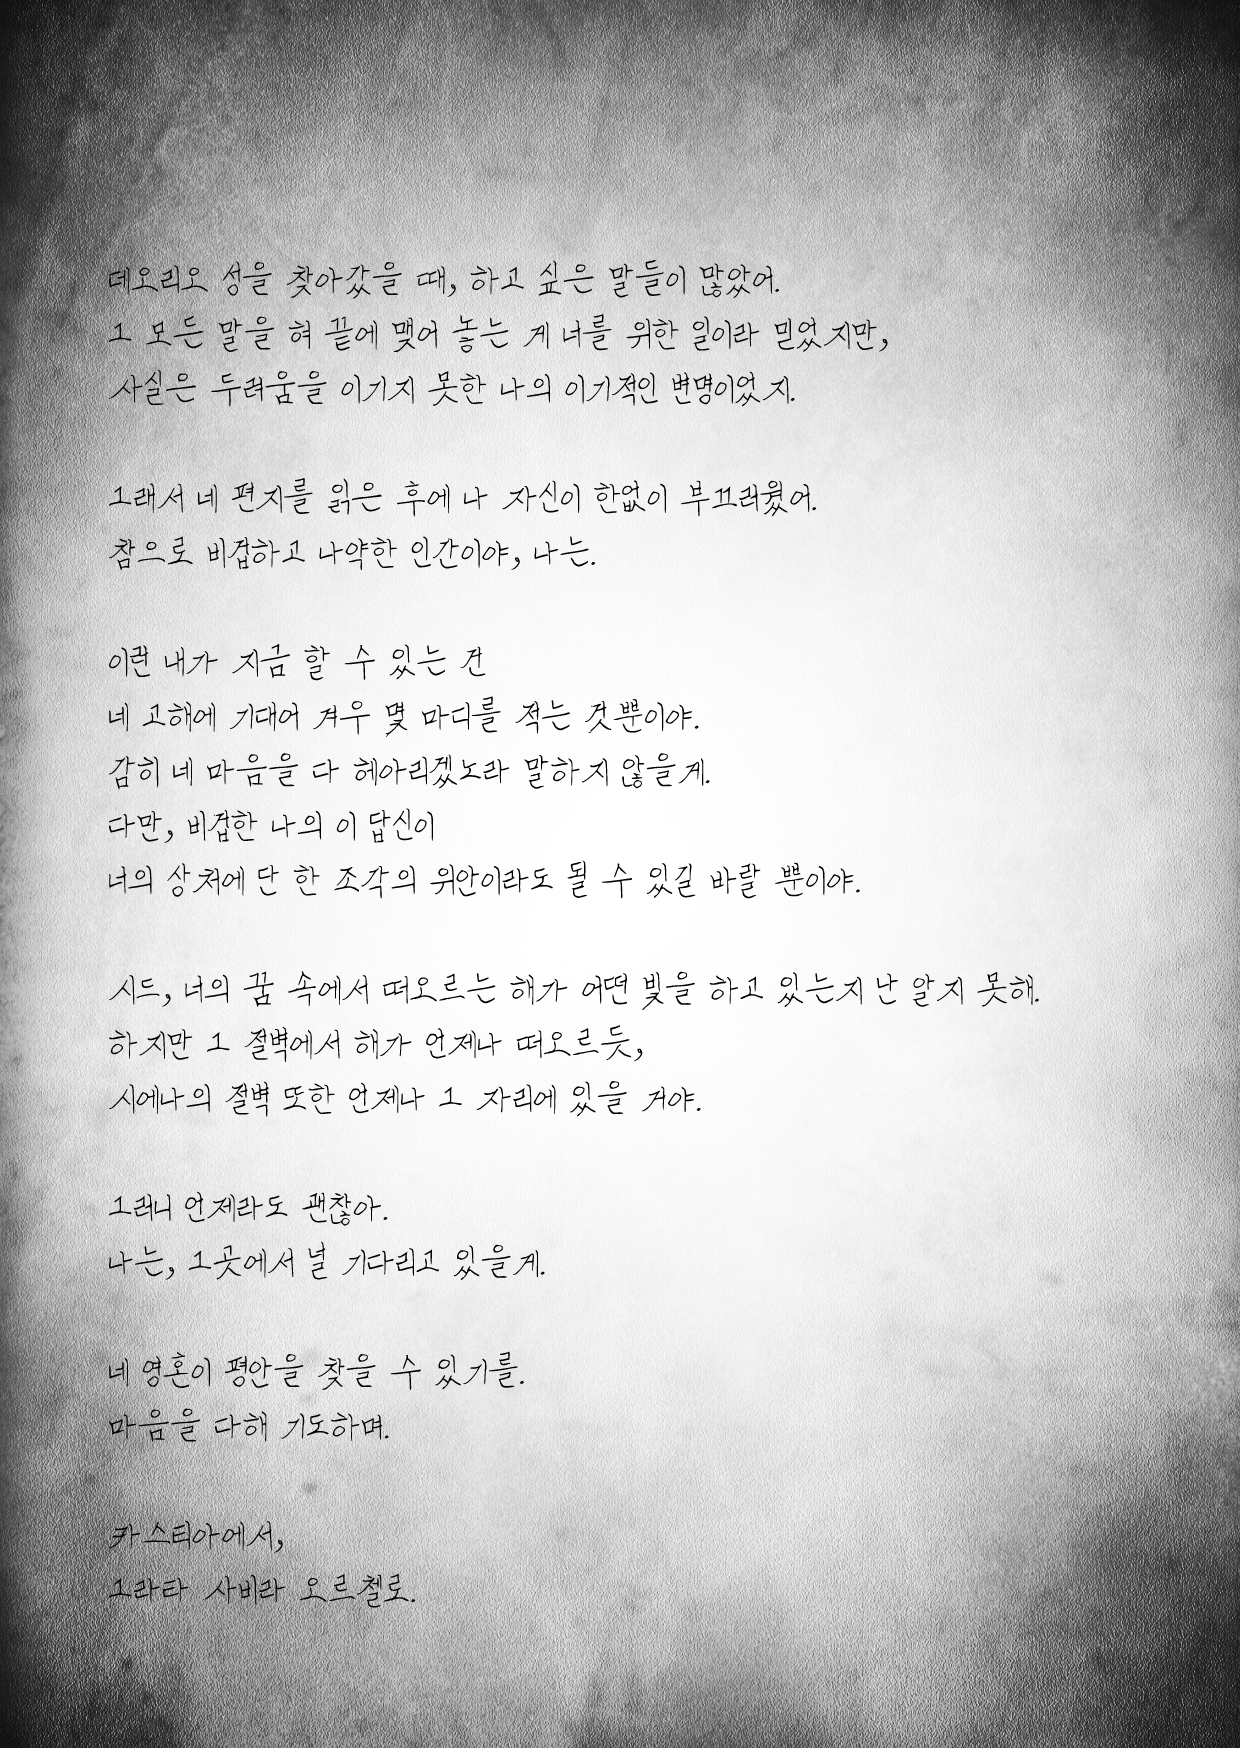 데오리오 성을 찾아갔을 때, 하고 싶은 말들이 많았어.
그 모든 말을 혀 끝에 맺어 놓는 게 너를 위한 일이라 믿었지만,
사실은 두려움을 이기지 못한 나의 이기적인 변명이었지.
그래서 네 편지를 읽은 후에 나 자신이 한없이 부끄러웠어.
참으로 비겁하고 나약한 인간이야, 나는.
이런 내가 지금 할 수 있는 건
네 고해에 기대어 겨우 몇 마디를 적는 것뿐이야.
감히 네 마음을 다 헤아리겠노라 말하지 않을게.
다만, 비겁한 나의 이 답신이
너의 상처에 단 한 조각의 위안이라도 될 수 있길 바랄 뿐이야.
시드, 너의 꿈 속에서 떠오르는 해가 어떤 빛을 하고 있는지 난 알지 못해.
하지만 그 절벽에서 해가 언제나 떠오르듯,
시에나의 절벽 또한 언제나 그 자리에 있을 거야.
그러니 언제라도 괜찮아.
나는, 그곳에서 널 기다리고 있을게.
네 영혼이 평안을 찾을 수 있기를.
마음을 다해 기도하며.
카스티아에서,
그라타 사비라 오르첼로.